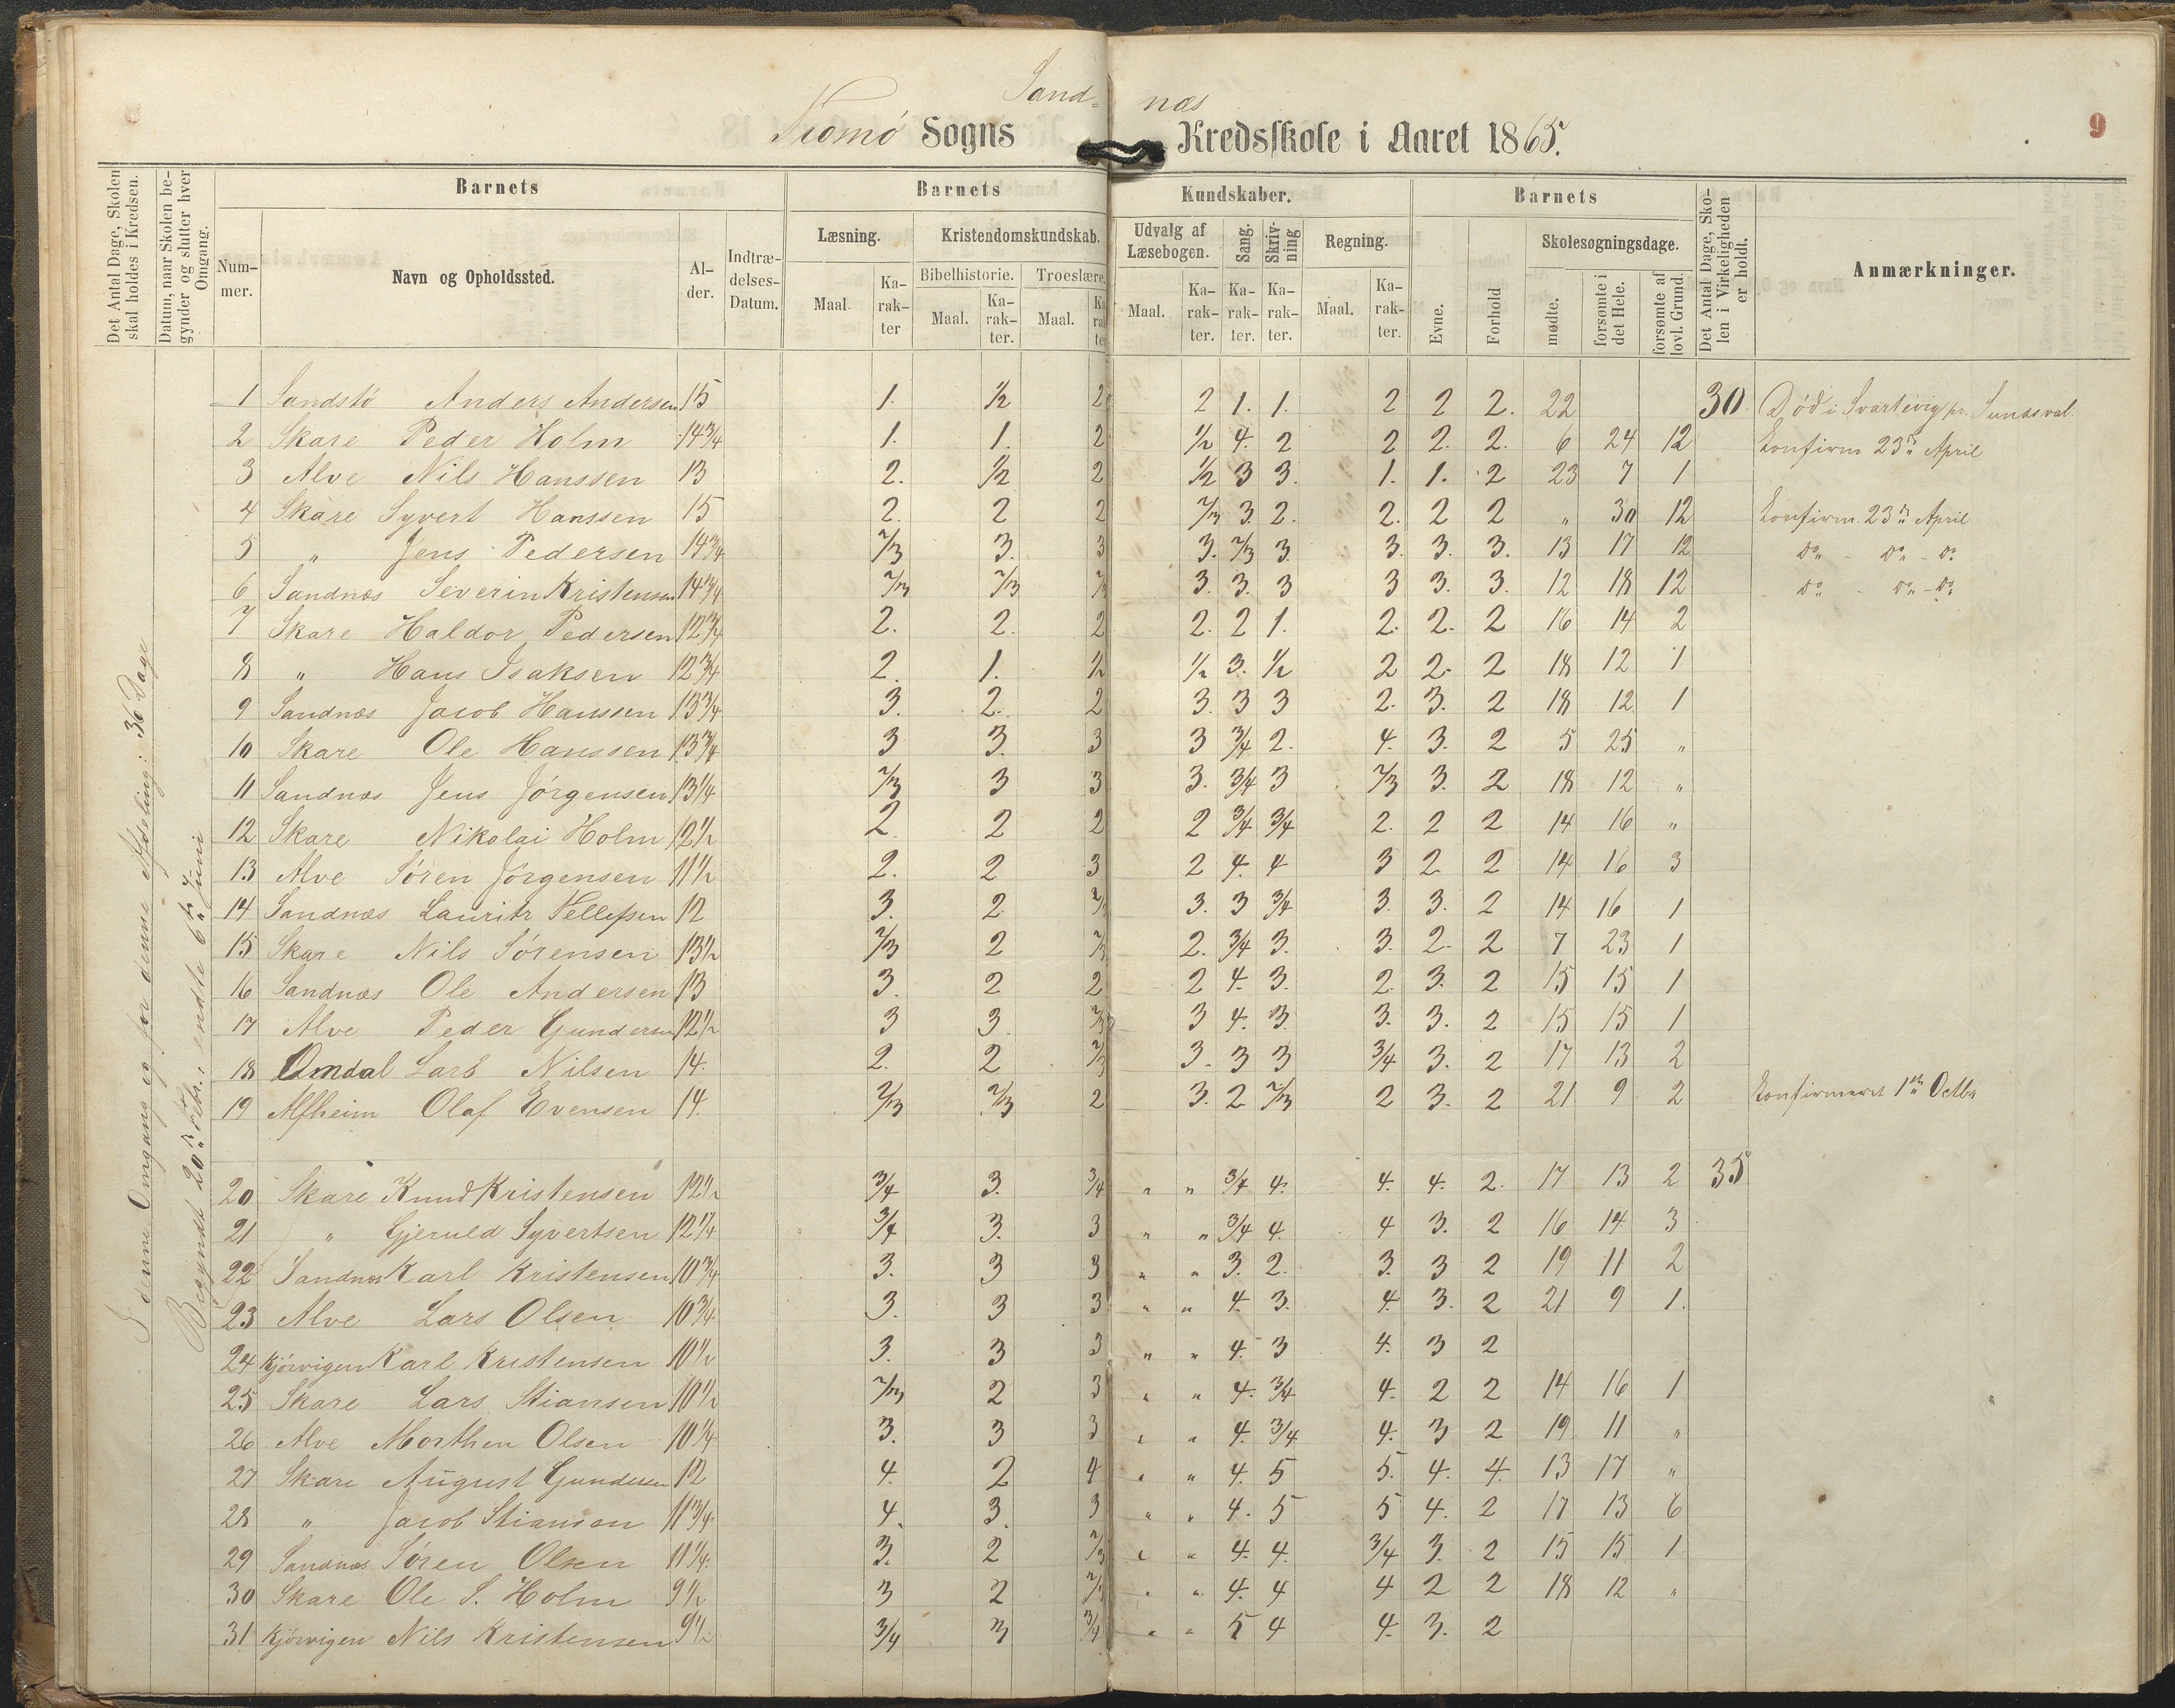 Sand= næs
Tromø Sogns Kredsskole i Aaret 1865.
9
Det Antal Dage, Skolen skal holdes i Kredsen.
Datum, naar Skolen begynder og slutter hver Omgang.
Barnets
Barnets Kundskaber.
Barnets
Det Antal Dage, Skolen i Virkeligheden er holdt.
Anmærkninger.
Nummer.
Navn og Opholdssted.
Alder.
Indtrædelses-Datum.
Læsning.
Kristendomskundskab.
Udvalg af Læsebogen.
Sang.
Skrivning
Regning.
Evne.
Forhold
Skolesøgningsdage.
Bibelhistorie.
Troeslære.
Maal.
Karakter
Maal.
Karakter.
Maal.
Karakter
Maal.
Karakter.
Karakter.
Karakter.
Maal.
Karakter.
mødte.
forsømte i det Hele.
forsømte af lovl. Grund.
I denne Omgang og for denne Afdeling: 36 Dage
Begyndt 20de Febr., endte 6te Juni
1 Sandstø Anders Andersen 15 1. 1/2 2 2 1. 1. 2 2 2. 22 30 Død i Svartevig pr. Sundsval.
2 Skare Peder Holm 14 3/4 1. 1. 2 1/2 4. 2 2 2. 2. 6 24 12 Konfirm 23de April
3 Alve Nils Hanssen 13 2. 1/2 2 1/2 3 3. 1. 1. 2 23 7 1
4 Skare Syvert Hanssen 15 2. 2 2 2/3 3. 2. 2. 2 2 " 30 12 Konfirm. 23de April
5 " Jens Pedersen 14 3/4 2/3 3. 3 3. 2/3 3. 3. 3. 3. 13 17 12 Do - Do - Do
6 Sandnæs Severin Kristensen 14 3/4 2/3 2/3 2/3 3. 3. 3 3 3. 3. 12 18 12 Do - Do - Do
7 Skare Haldor Pedersen 12 3/4 2. 2. 2 2. 2 1. 2. 2. 2 16 14 2
8 " Hans Isaksen 12 3/4 2. 1. 1/2 1/2 3. 1/2 2 2. 2 18 12 1
9 Sandnæs Jacob Hanssen 13 3/4 3. 2. 2 3. 3 3 2. 3. 2 18 12 1
10 Skare Ole Hanssen 13 3/4 3 3. 3 3 3/4 2. 4. 3. 2 5 25 "
11 Sandnæs Jens Jørgensen 13 1/4 2/3 3 3 3. 3/4 3 2/3 3. 2 18 12 "
12 Skare Nikolai Holm 12 1/2 2. 2 2 2 3/4 3/4 2. 2 2 14 16 "
13 Alve Søren Jørgensen 11 1/2 2. 2 3 2 4. 4 3 2 2 14 16 3
14 Sandnæs Lauritz Tellefsen 12 3. 2 2/3 3. 3 3/4 3. 3. 2 14 16 1
15 Skare Nils Sørensen 13 1/2 2/3 2 2/3 2. 3/4 3. 3. 2. 2 7 23 1
16 Sandnæs Ole Andersen 13 3. 2 2 2 4. 3. 2. 3. 2 15 15 1
17 Alve Peder Gundersen 12 1/2 3 3. 2/3 3 4. 3. 3. 3. 2 15 15 1
18 Omdal Lars Nilsen 14. 2. 2 2/3 3. 3 3 3/4 3. 2 17 13 2
19 Alfheim Olaf Evensen 14. 2/3 2/3 2 3. 2 2/3 2 3. 2 21 9 2 Konfirmeret 1ste Octbr
20 Skare Knud Kristensen 12 1/2 3/4 3. 3/4 " " 3/4 4. 4. 4. 2. 17 13 2 35
21 " Gjeruld Syvertsen 12 1/4 3/4 3. 3 " " 3/4 4. 4 3. 2 16 14 3
22 Sandnæs Karl Kristensen 10 3/4 3. 3 3 " " 3. 2. 3. 3 2 19 11 2
23 Alve Lars Olsen 10 3/4 3. 3 3 " " 4. 3. 4. 3. 2 21 9 1.
24 Kjörvigen Karl Kristensen 10 1/2 3. 3 3 " " 4. 3 4. 3 2
25 Skare Lars Stiansen 10 1/2 2/3 2 3 " " 4. 3/4 4. 2 2 14 16 1
26 Alve Morthen Olsen 10 1/4 3. 3 3 " " 4. 3/4 4. 3 2 19 11 "
27 Skare August Gundersen 12 4. 2 4 " " 4. 5 5. 4. 4. 13 17 "
28 " Jacob Stiansen 11 3/4 4. 3. 3 " " 4. 5 5 4. 2 17 13 6
29 Sandnæs Søren Olsen 11 1/4 3. 2 2/3 " " 4. 4. 3/4 3. 2 15 15 1
30 Skare Ole S. Holm 9 1/2 3 2 2/3 " " 4. 4 4 2 2 18 12 "
31 Kjörvigen Nils Kristensen 9 1/2 3/4 3 3/4 " " 5 4 4. 3. 2